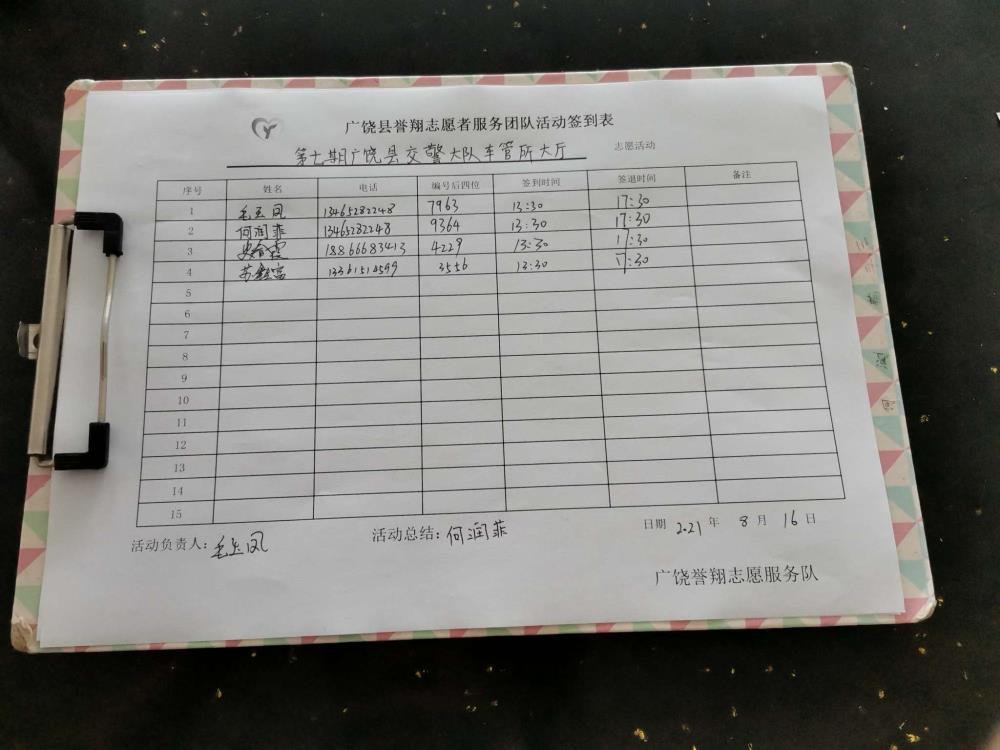 广饶县誉翔志愿者服务团队活动签到表
第七期广饶县交警大队车管所大厅 志愿活动
序号 姓名 电话 编号后四位 签到时间 签退时间 备注
1 毛玉凤 13465282248 7963 13:30 17:30
2 何润菲 13465282248 9364 13:30 17:30
3 18866683413 4229 13:30 17:30
4 苏 富 13361514599 3556 13:30 17:30
5
6
7
8
9
10
11
12
13
14
15
活动负责人：毛玉凤 活动总结：何润菲 日期 2021 年 8 月 16 日
广饶誉翔志愿服务队